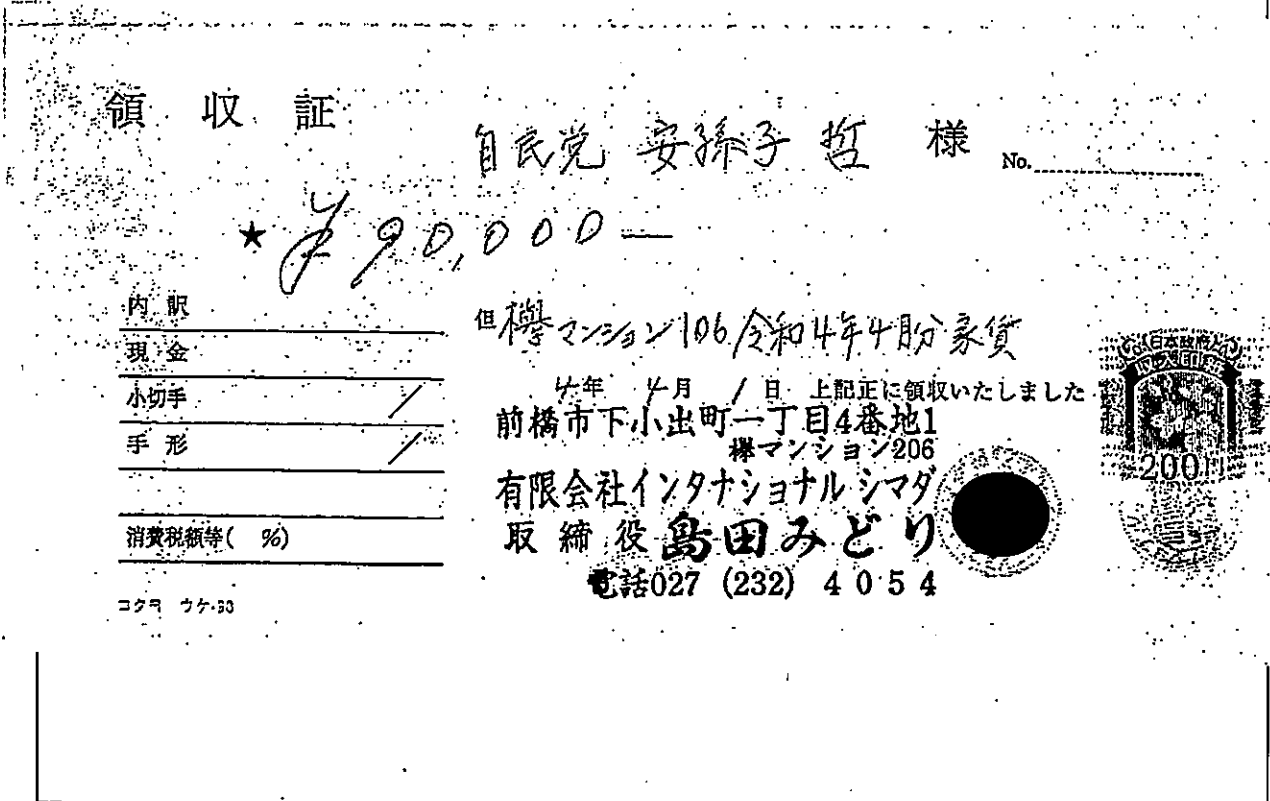 領収証
自民党 安孫子 哲 様
No.
★ ¥90,000—
内訳
現金
小切手 /
手形 /
消費税額等( %)
コクヨ ウケ-93
但 欅マンション106 令和4年4月分 家賃
4年 4月 1日 上記正に領収いたしました
前橋市下小出町一丁目4番地1
欅マンション206
有限会社インタナショナルシマダ
取締役 島田みどり
電話027 (232) 4054
日本政府
収入印紙
200円